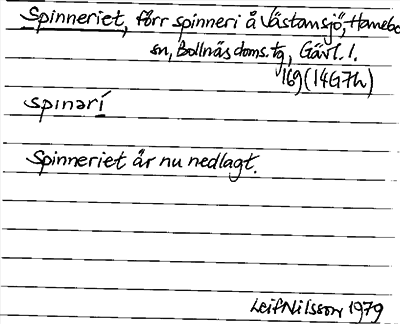 Spinneriet, förr spinneri å Västansjö, Hanebo
sn, Bollnäs doms. tg, Gävl. l.
169 (14G7h)
spınərí
Spinneriet är nu nedlagt.
Leif Nilsson 1979